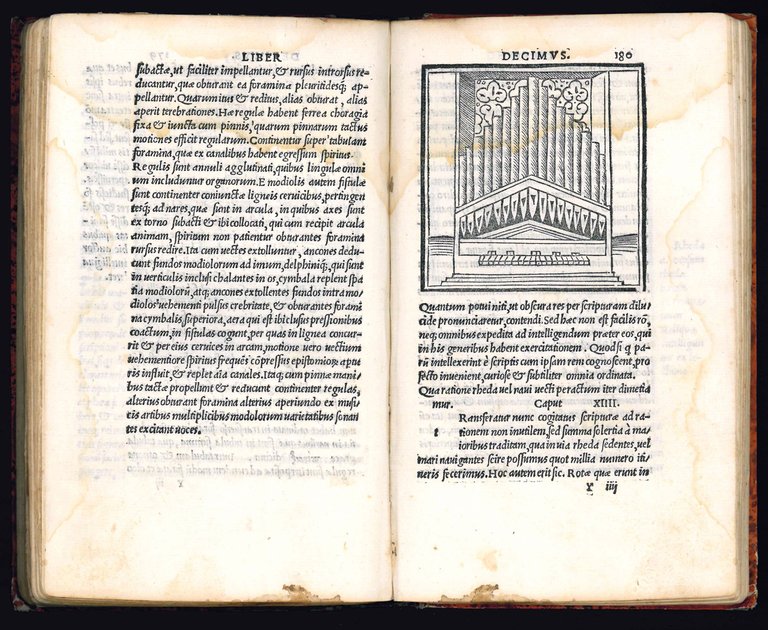 LIBER
subactæ, ut faciliter impellantur, & rursus introrsus re-
ducantur, quæ obturant ea foramina plenitidesq; ap-
pellantur. Quarum itus & reditus, alias obturat, alias
aperit terebrationes. Hæ regulæ habent ferrea choragia
fixa & iuncta cum pinnis, quarum pinnarum tactus
motiones efficit regularum. Continentur super tabulam
foramina, quæ ex canalibus habent egressum spiritus.
Regulis sunt annuli agglutinati, quibus lingulæ omni
um includuntur organorum. E modiolis autem fistulæ
sunt continenter coniunctæ ligneis ceruicibus, pertingen
tesq; ad nares, quæ sunt in arcula, in quibus axes sunt
ex torno subacti & ibi collocati, qui cum recipit arcula
animam, spiritum non patientur obturantes foramina
rursus redire. Ita cum uectes extolluntur, ancones dedu-
cunt fundos modiolorum ad imum, delphiniq;, qui sunt
in uerticulis inclusi chalantes in os, cymbala replent spa
tia modiolorū, atq; ancones extollentes fundos intra mo
diolos uehementi pulsus crebritate, & obturantes forami
na cymbalis superiora, aera qui est ibi clusus pressionibus
coactum, in fistulas cogunt, per quas in lignea concur-
rit & per eius ceruices in arcam, motione uero uectium
uehementiore spiritus frequēs cōpressus epistomiorū aptu
ris influit, & replet aīa canales. Itaq; cum pinnæ mani
bus tactæ propellunt & reducunt continenter regulas,
alterius obturant foramina alterius aperiendo ex musi
cis artibus multiplicibus modolorum uarietatibus sonan
tes excitant uoces.
DECIMVS. 180
Quantum potui niti, ut obscura res per scripturam dilu
cide pronunciaretur, contendi. Sed hæc non est facilis rō,
neq; omnibus expedita ad intelligendum præter eos, qui
in his generibus habent exercitationem. Quodsi q pa
rū intellexerint è scriptis cum ipsam rem cognoscent, pro
fecto inuenient, curiose & subtiliter omnia ordinata.
Qua ratione rheda uel naui uecti peractum iter dimetia
mur. Caput XIIII.
t Ransferatur nunc cogitatus scripturæ ad ra-
tionem non inutilem, sed summa solertia à ma
ioribus traditam, qua in uia rheda sedentes, uel
mari nauigantes scire possumus quot millia numero iti
neris fecerimus. Hoc autem erit sic. Rotæ quæ erunt in
Y iiij